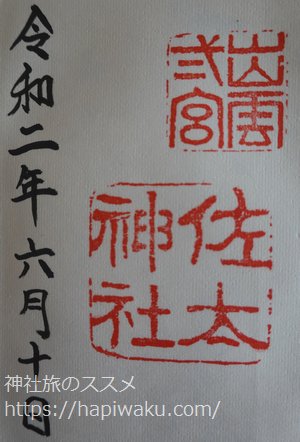 出雲
弎宮
佐太
神社
令和二年六月十日
神社旅のススメ
https://hapiwaku.com/